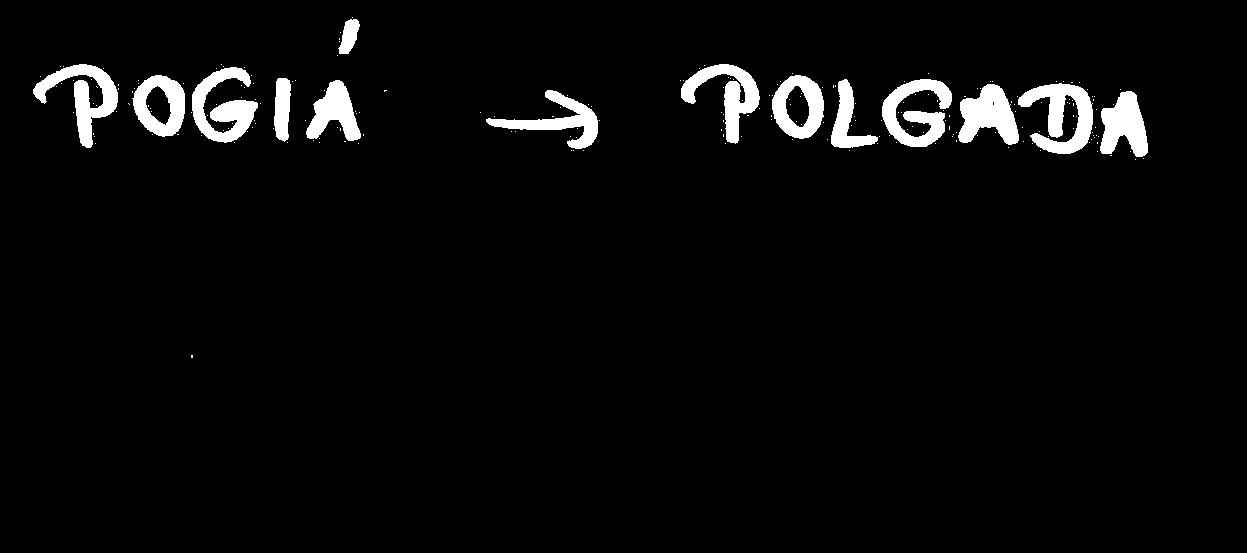 POGIÁ → POLGADA